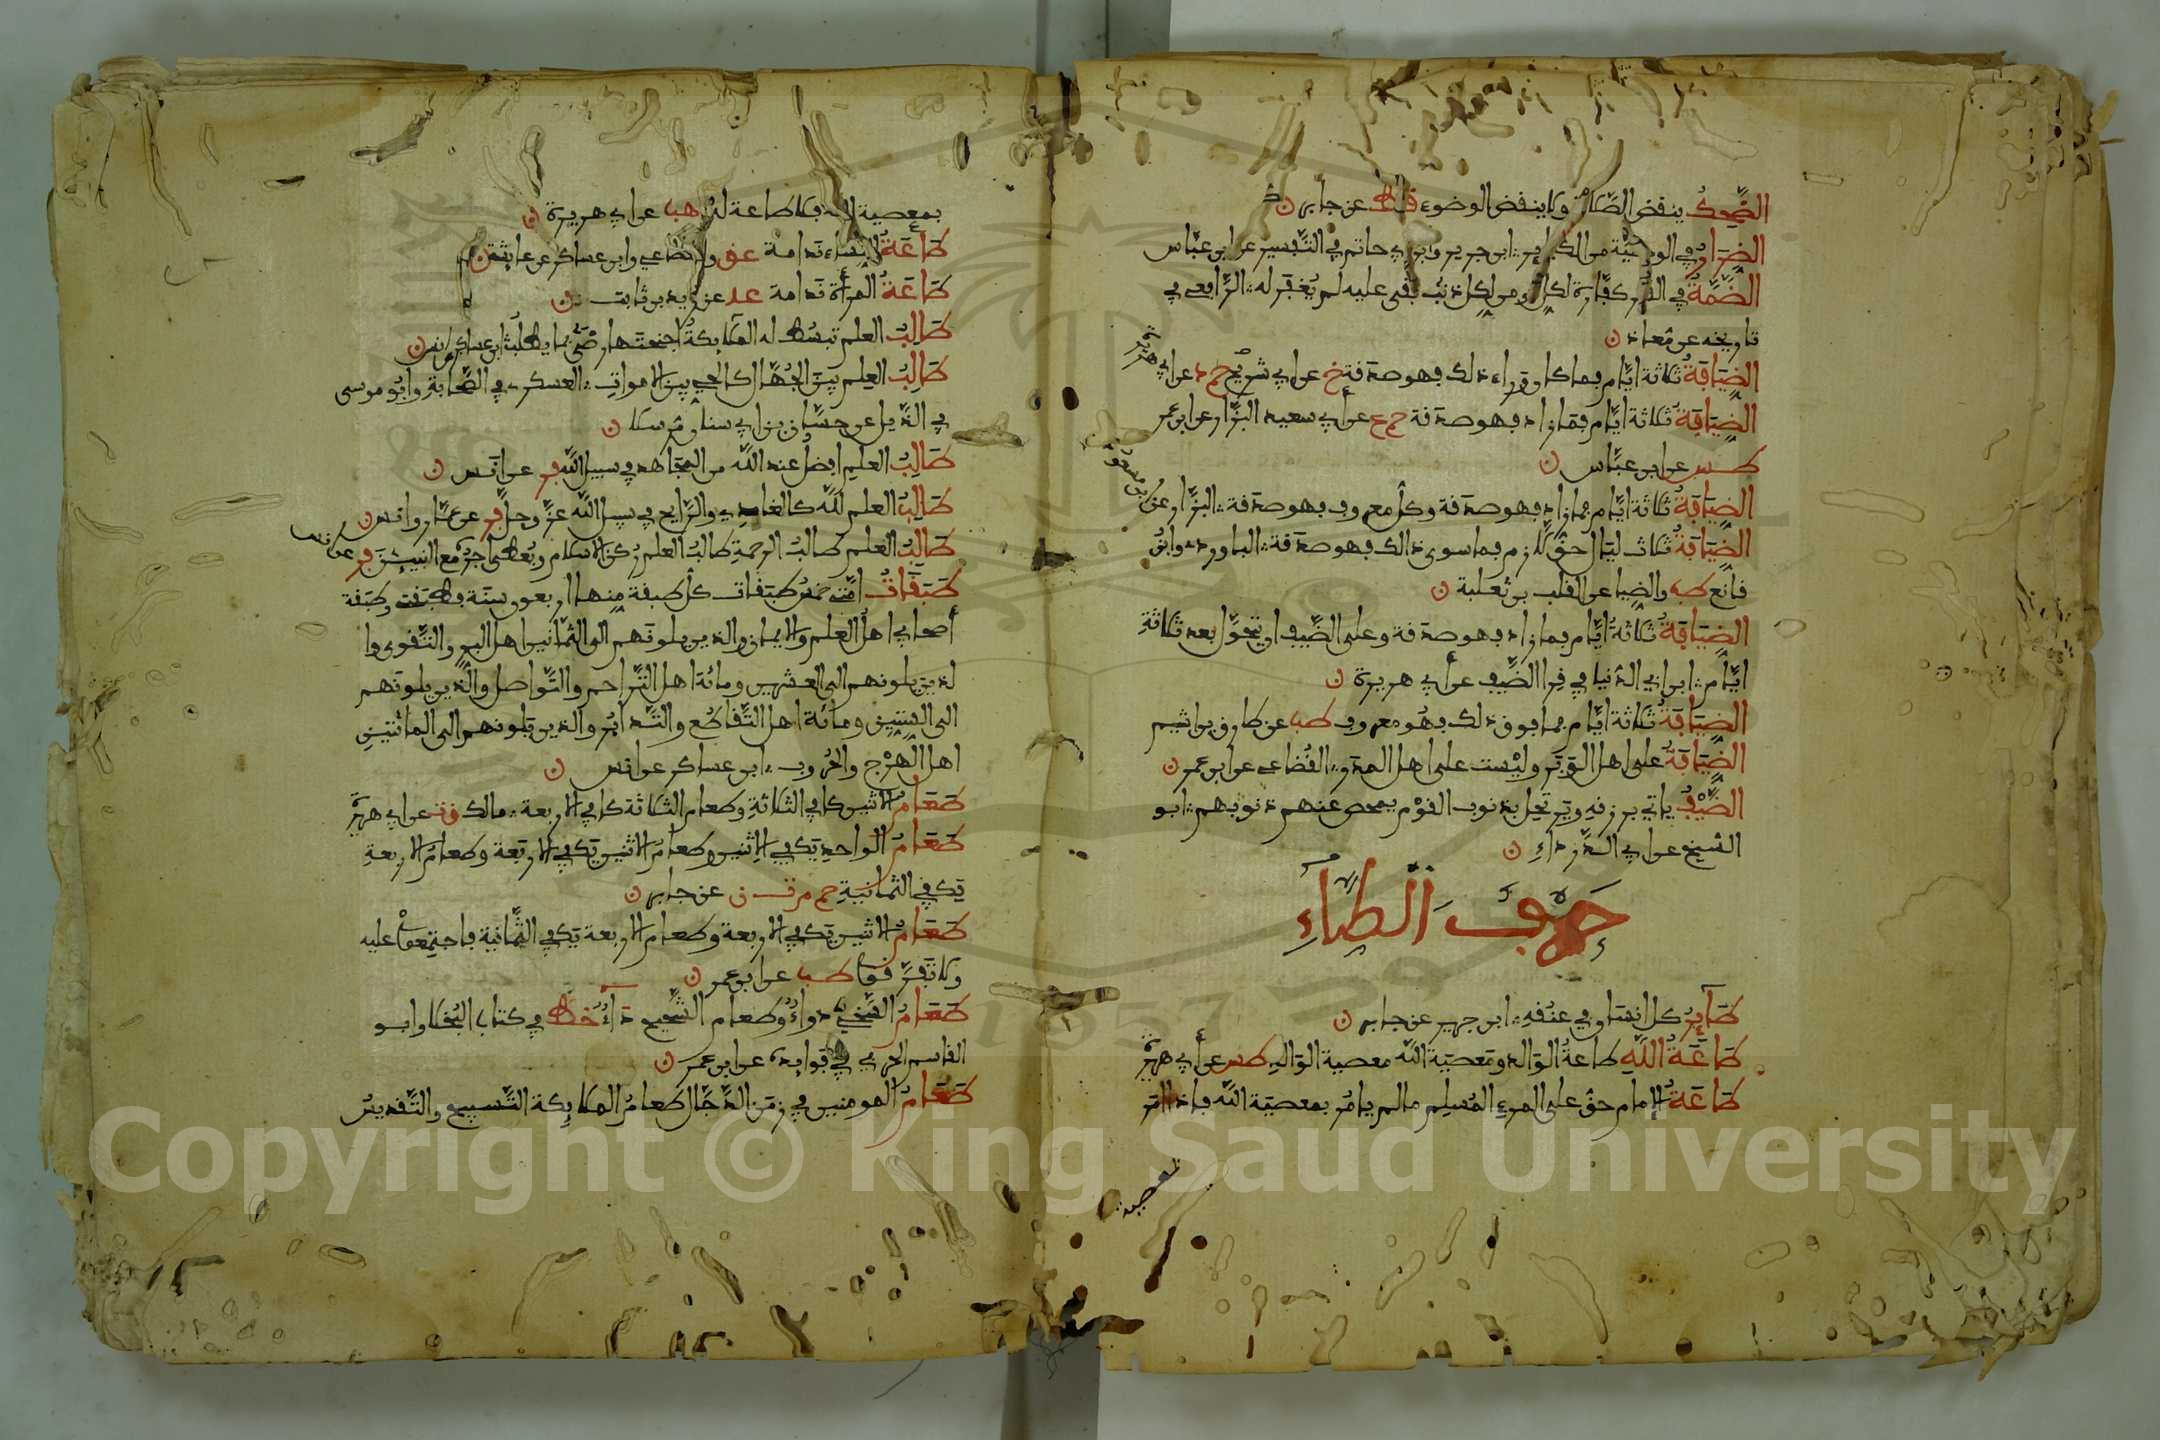 الضحك ينقض الصلاة ولا ينقض الوضوء قط عن جابر
الضرار في الوصية من الكبائر ابن جرير وابن ابي حاتم في التفسير عن ابن عباس
الضمة في القبر كفارة لكل مومن لكل ذنب بقي عليه لم يغفر له الرافعي في
تاريخه عن معاذ
الضيافة ثلاثة ايام فما كان وراء ذلك فهو صدقة خ عن ابي شريح حم د عن ابي هريرة
الضيافة ثلاثة ايام فما زاد فهو صدقة حم ع عن ابي سعيد البزار عن ابن عمر
طس عن ابن عباس
الضيافة ثلاثة ايام فما زاد فهو صدقة وكل معروف فهو صدقة البزار عن
ابن مسعود
الضيافة ثلاث ليال حق لازم فما سوى ذالك فهو صدقة الباوردي وابن
قانع طب والضيا عن الثلب بن ثعلبة
الضيافة ثلاثة ايام فما زاد فهو صدقة وعلى الضيف ان يتحول بعد ثلاثة
ايام ابن ابي الدنيا في قرا الضيف عن ابي هريرة
الضيافة ثلاثة ايام فما فوق ذلك فهو معروف طب عن طارق بن اشيم
الضيافة على اهل الوبر وليست على اهل المدر القضاعي عن ابن عمر
الضيف ياتي برزقه ويرتحل بذنوب القوم يمحص عنهم ذنوبهم ابو
الشيخ عن ابي الدرداء
حرف الطاء
طاير كل انسان في عنقه ابن جرير عن جابر
طاعة الله طاعة الوالد ومعصية الله معصية الوالد طس عن ابي هريرة
طاعة الامام حق على المرء المسلم ما لم يامر بمعصية الله فاذا امر
بمعصية
بمعصية الله فلا طاعة له هب عن ابي هريرة
طاعة النساء ندامة عق والقضاعي وابن عساكر عن عايشة
طاعة المرأة ندامة عد عن زيد بن ثابت
طالب العلم تبسط له الملايكة اجنحتها رضى بما يطلب ابن عساكر عن انس
طالب العلم بين الجهال كالحي بين الاموات العسكري في الصحابة وابو موسى
في الذيل عن حسان بن ابي سنان مرسلا
طالب العلم افضل عند الله من المجاهد في سبيل الله فر عن انس
طالب العلم لله كالغادي والرايح في سبيل الله عز وجل فر عن عمار وانس
طالب العلم طالب الرحمة طالب العلم ركن الاسلام ويعطى اجره مع النبيين فر عن انس
طبقات امتي خمس طبقات كل طبقة منها اربعون سنة فطبقتي وطبقة
أصحابي اهل العلم والايمان والذين يلونهم الى الثمانين اهل البر والتقوى وا
لذين يلونهم الى العشرين ومائة اهل التراحم والتواصل والذين يلونهم
الى الستين ومائة اهل التقاطع والتدابر والذين يلونهم الى المائتين
اهل الهرج والحروب ابن عساكر عن انس
طعام الاثنين كافي الثلاثة وطعام الثلاثة كافي الاربعة مالك ق ت عن ابي هريرة
طعام الواحد يكفي الاثنين وطعام الاثنين يكفي الاربعة وطعام الاربعة
يكفي الثمانية حم م ت ن عن جابر
طعام الاثنين يكفي الاربعة وطعام الاربعة يكفي الثمانية فاجتمعوا عليه
ولا تفرقوا طب عن ابن عمر
طعام السخي دواء وطعام الشحيح داء خط في كتاب البخلا وابو
القاسم الحرفي في فوايده عن ابن عمر
طعام المومنين في زمن الدجال طعام الملايكة التسبيح والتقديس
Copyright © King Saud University
1957